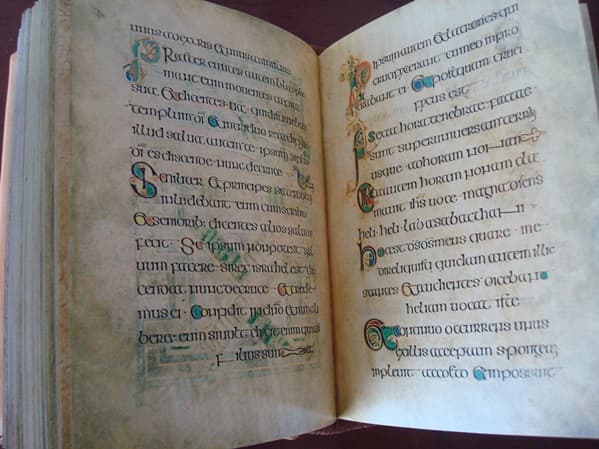 unus adextris & unus asinistris
Praeter euntes autem blasphe
mant eum mouentes capita
sua & dicentes ua qui distruebat
templum di & intriduo reaedificabat
illud salua temet ipsum
di es discende nunc decruce
Similiter & principes sacerdotum
inludebant eum cum scribis
& seniorib; dicentes alios saluos
fecit · Se ipsum non potest sal
uum facere · si rex israhel est dis
cendat nunc decruce · & crede
mus ei · Confidit in dno & nunc li
ber& eum si uult dixit enim quia di
filius sum
ipsum autem & latrones qui
crucifixi erant cum eo inpro
rabant ei & postquam cruci
fixus est
A sexta hora tenebrae factae
sunt super uniuersam terram
usque ad horam nonam
autem horam nonam cla
mauit ihs uoce magna dicens
heli · heli · laba sabacthani
hoc est ds ds meus quare me
direliquisti quidam autem illic
stantes & audientes dicebant
heliam uocat iste
& continuo occurrens unus
ex illis acceptam spongeam
impleuit aceto & impossuit